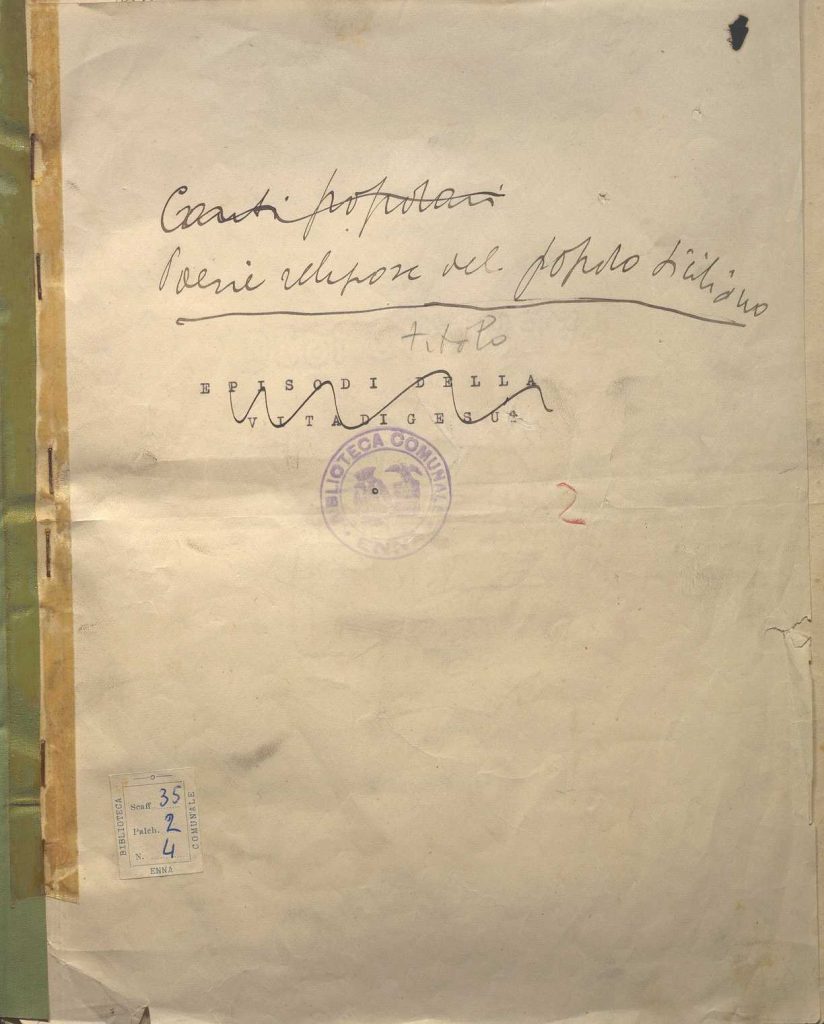 Canti popolari
Poesie religiose del popolo siciliano
titolo
EPISODI DELLA
VITA DI GESU'
BIBLIOTECA COMUNALE
ENNA
2
BIBLIOTECA
COMUNALE
Scaff. 35
Palch. 2
N. 4
ENNA